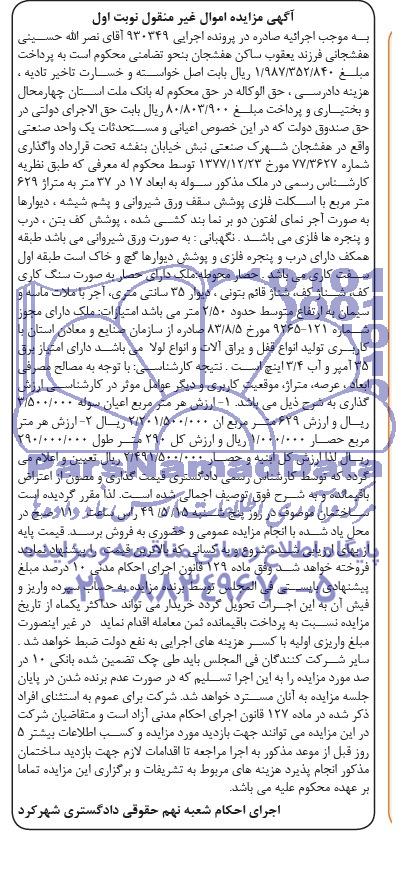 آگهی مزایده اموال غیر منقول نوبت اول
به موجب اجرائیه صادره در پرونده اجرایی ۹۳۰۳۴۹ آقای نصر الله حسینی
هفشجانی فرزند یعقوب ساکن هفشجان بنحو تضامنی محکوم است به پرداخت
مبلغ ۱/۹۸۷/۳۵۲/۸۴۰ ریال بابت اصل خواسته و خسارت تاخیر تادیه ،
هزینه دادرسی ، حق الوکاله در حق محکوم له بانک ملت استان چهارمحال
و بختیاری و پرداخت مبلغ ۸۰/۸۰۳/۹۰۰ ریال بابت حق الاجرای دولتی در
حق صندوق دولت که در این خصوص اعیانی و مستحدثات یک واحد صنعتی
واقع در هفشجان شهرک صنعتی نبش خیابان بنفشه تحت قرارداد واگذاری
شماره ۷۷/۳۶۲۷ مورخ ۱۳۷۷/۱۲/۲۳ توسط محکوم له معرفی که طبق نظریه
کارشناس رسمی در ملک مذکور سوله به ابعاد ۱۷ در ۳۷ متر به متراژ ۶۲۹
متر مربع با اسکلت فلزی پوشش سقف ورق شیروانی و پشم شیشه ، دیوارها
به صورت آجر نمای لفتون دو بر نما بند کشی شده ، پوشش کف بتن ، درب
و پنجره ها فلزی می باشند . نگهبانی : به صورت ورق شیروانی می باشد طبقه
همکف دارای درب و پنجره فلزی و پوشش دیوارها گچ و خاک است طبقه اول
سفت کاری می باشد . حصار محوطه:ملک دارای حصار به صورت سنگ کاری
کف، شناژ کف، شناژ قائم بتونی ، دیوار ۳۵ سانتی متری، آجر با ملات ماسه و
سیمان به ارتفاع متوسط حدود ۲/۵۰ متر می باشد امتیازات: ملک دارای مجوز
شماره ۱۲۱-۹۲۶۵ مورخ ۸۳/۸/۵ صادره از سازمان صنایع و معادن استان با
کاربری تولید انواع قفل و یراق آلات و انواع لولا می باشد دارای امتیاز برق
۳۵ آمپر و آب ۳/۴ اینچ است . نتیجه کارشناسی: با توجه به مصالح مصرفی
ابعاد ، عرصه، متراژ، موقعیت کاربری و دیگر عوامل موثر در کارشناسی ارزش
گذاری به شرح ذیل می باشد. ۱- ارزش هر متر مربع اعیان سوله ۳/۵۰۰/۰۰۰
ریال و ارزش ۶۲۹ متر مربع آن ۲/۲۰۱/۵۰۰/۰۰۰ ریال ۲- ارزش هر متر
مربع حصار ۱/۰۰۰/۰۰۰ ریال و ارزش کل ۲۹۰ متر طول ۲۹۰/۰۰۰/۰۰۰
ریال لذا ارزش کل ابنیه و حصار ۲/۴۹۱/۵۰۰/۰۰۰ ریال تعیین و اعلام می
گردد که توسط کارشناس رسمی دادگستری قیمت گذاری و مصون از اعتراض
باقیمانده و به شرح فوق توصیف اجمالی شده است. لذا مقرر گردیده است
ساختمان موصوف در روز پنج شنبه راس ساعت ۱۱ صبح در
محل یاد شده با انجام مزایده عمومی و حضوری به فروش برسد. قیمت پایه
از بهای ارزیابی شده شروع و به کسانی که بالاترین قیمت را پیشنهاد نمایند
فروخته خواهد شد وفق ماده ۱۲۹ قانون اجرای احکام مدنی ۱۰ درصد مبلغ
پیشنهادی بایستی فی المجلس توسط برنده مزایده به حساب سپرده واریز و
فیش آن به این اجرات تحویل گردد خریدار می تواند حداکثر یکماه از تاریخ
مزایده نسبت به پرداخت باقیمانده ثمن معامله اقدام نماید در غیر اینصورت
مبلغ واریزی اولیه با کسر هزینه های اجرایی به نفع دولت ضبط خواهد شد .
سایر شرکت کنندگان فی المجلس باید طی چک تضمین شده بانکی ۱۰ در
صد مورد مزایده را به این اجرا تسلیم که در صورت عدم برنده شدن در پایان
جلسه مزایده به آنان مسترد خواهد شد. شرکت برای عموم به استثنای افراد
ذکر شده در ماده ۱۲۷ قانون اجرای احکام مدنی آزاد است و متقاضیان شرکت
در این مزایده می توانند جهت بازدید مورد مزایده و کسب اطلاعات بیشتر ۵
روز قبل از موعد مذکور به اجرا مراجعه تا اقدامات لازم جهت بازدید ساختمان
مذکور انجام پذیرد هزینه های مربوط به تشریفات و برگزاری این مزایده تماما
بر عهده محکوم علیه می باشد.
اجرای احکام شعبه نهم حقوقی دادگستری شهرکرد
ParsNamadData
۰۲۱-۸۸۳۴۹۶۷۰-۵